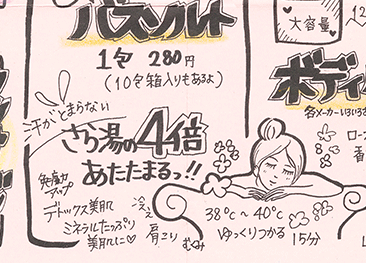 バスソルト
1包 280円
(10包箱入りもあるよ)
汗がとまらない
さら湯の4倍
あたたまるっ!!
免疫力
アップ
デトックス美肌
ミネラルたっぷり
美肌に♡
冷え
肩こり
むくみ
38℃~40℃
ゆっくりつかる
15分
大容量♥
12
ボディ
各メーカーいろいろ
ロー
香